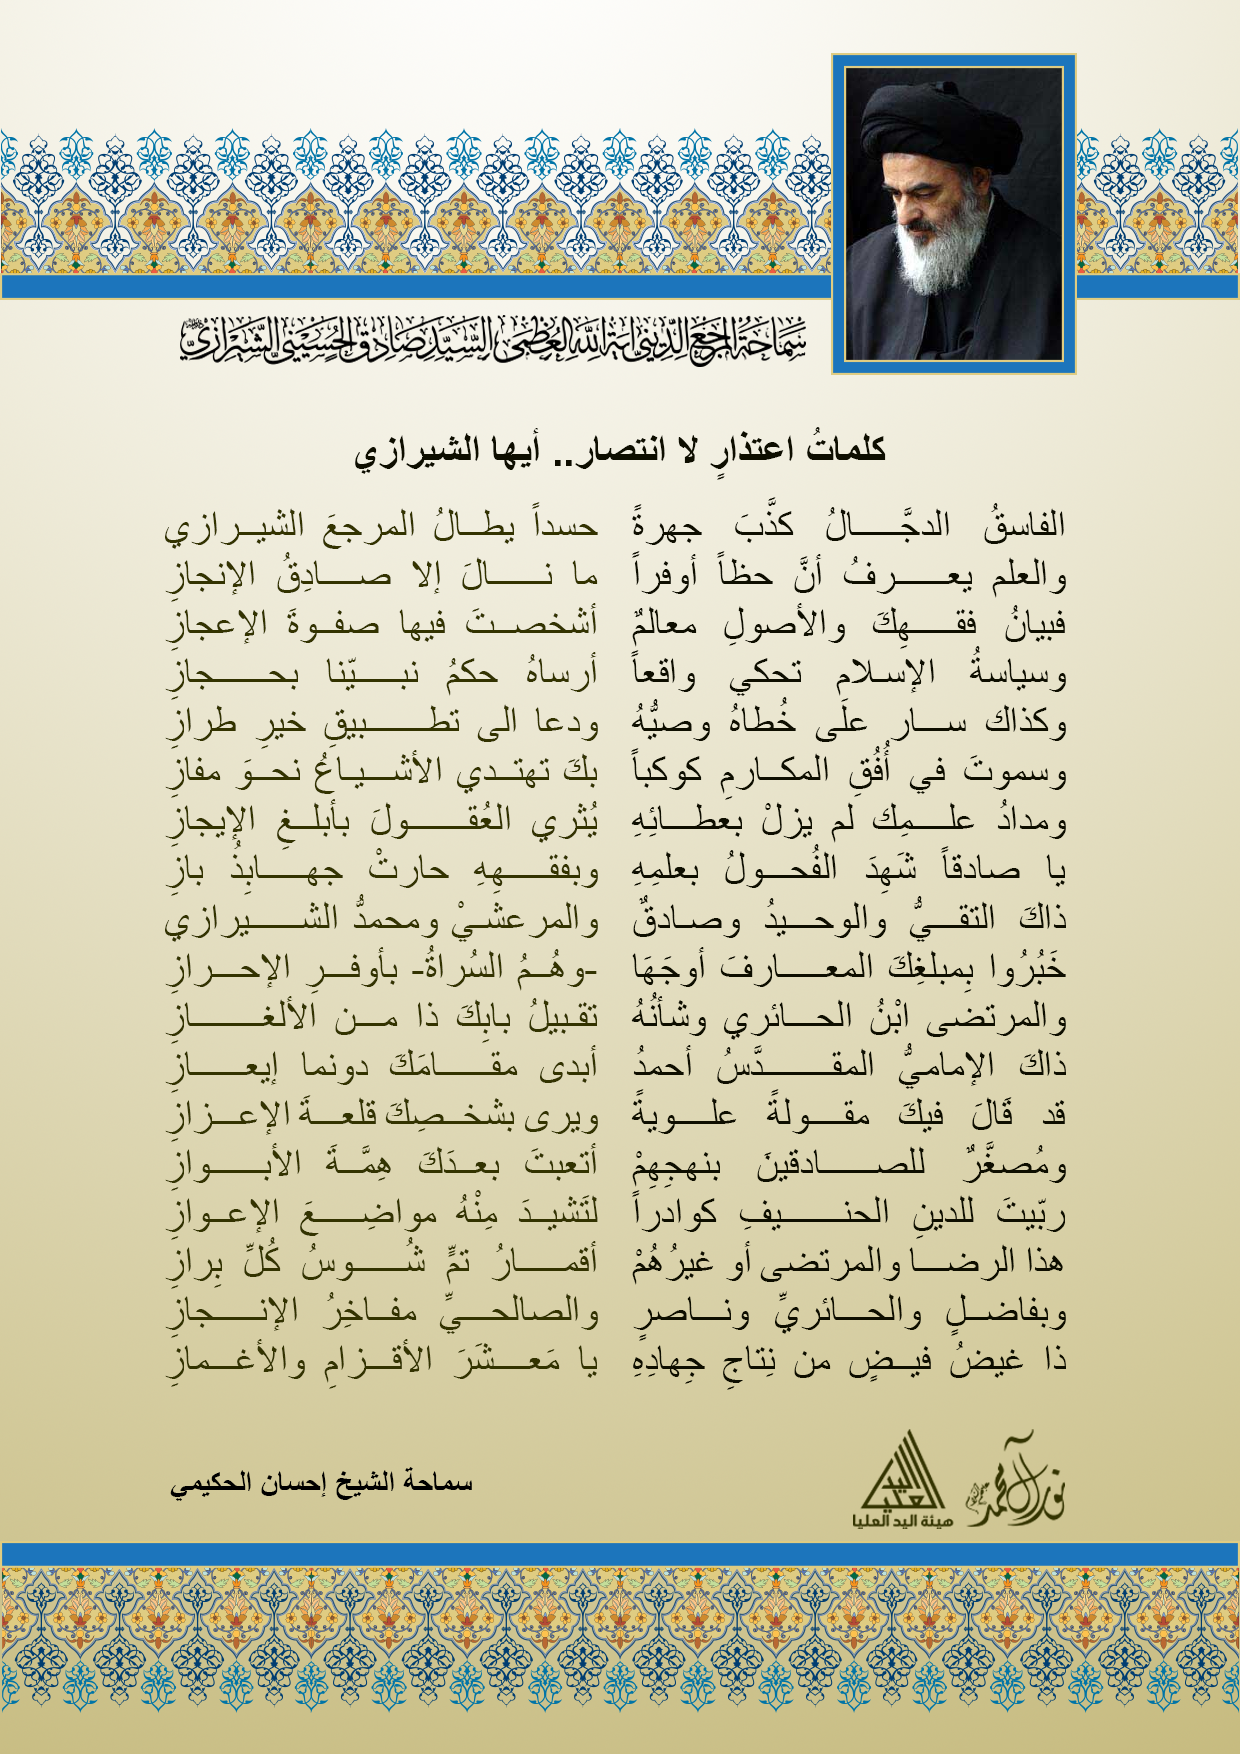 سماحة المرجع الديني آية الله العظمى السيد صادق الحسيني الشيرازي
كلماتُ اعتذارٍ لا انتصار.. أيها الشيرازي
الفاسقُ الدجَّالُ كذَّبَ جهرةً حسداً يطالُ المرجعَ الشيرازي
والعلم يعرفُ أنَّ حظاً أوفراً ما نالَ إلا صادِقُ الإنجازِ
فبيانُ فقهِكَ والأصولِ معالمٌ أشخصتَ فيها صفوةَ الإعجازِ
وسياسةُ الإسلامِ تحكي واقعاً أرساهُ حكمُ نبيّنا بحجازِ
وكذاك سار علَى خُطاهُ وصيُّهُ ودعا الى تطبيقِ خيرِ طرازِ
وسموتَ في أُفُقِ المكارمِ كوكباً بكَ تهتدي الأشياعُ نحوَ مفازِ
ومدادُ علمِك لم يزلْ بعطائِهِ يُثري العُقولَ بأبلغِ الإيجازِ
يا صادقاً شَهِدَ الفُحولُ بعلمِهِ وبفقهِهِ حارتْ جهابِذُ بازِ
ذاكَ التقيُّ والوحيدُ وصادقٌ والمرعشيْ ومحمدُّ الشيرازي
خَبُرُوا بِمبلغِكَ المعارفَ أوجَهَا -وهُمُ السُراةُ- بأوفرِ الإحرازِ
والمرتضى ابْنُ الحائري وشأنُهُ تقبيلُ بابِكَ ذا من الألغازِ
ذاكَ الإماميُّ المقدَّسُ أحمدُ أبدى مقامَكَ دونما إيعازِ
قد قَالَ فيكَ مقولةً علويةً ويرى بشخصِكَ قلعةَ الإعزازِ
ومُصغَّرٌ للصادقينَ بنهجِهِمْ أتعبتَ بعدَكَ هِمَّةَ الأبوازِ
ربّيتَ للدينِ الحنيفِ كوادراً لتَشيدَ مِنْهُ مواضِعَ الإعوازِ
هذا الرضا والمرتضى أو غيرُهُمْ أقمارُ تمٍّ شُوسُ كُلِّ بِرازِ
وبفاضلٍ والحائريِّ وناصرٍ والصالحيِّ مفاخِرُ الإنجازِ
ذا غيضُ فيضٍ من نِتاجِ جِهادِهِ يا مَعشَرَ الأقزامِ والأغمازِ
نور آل محمد
اليد العليا
هيئة اليد العليا
سماحة الشيخ إحسان الحكيمي